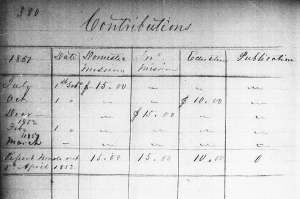 380
Contributions
1851 Date Domestic Missions "n" Mission Education Publication
July 1st Sabt $15.00 " " "
Oct 1 " " " $10.00 "
Decr " " $15.00 " "
1852
Feby 1 " " " " "
1852
March " " " " "
Report made out 15.00 15.00 10.00 0
April 1852